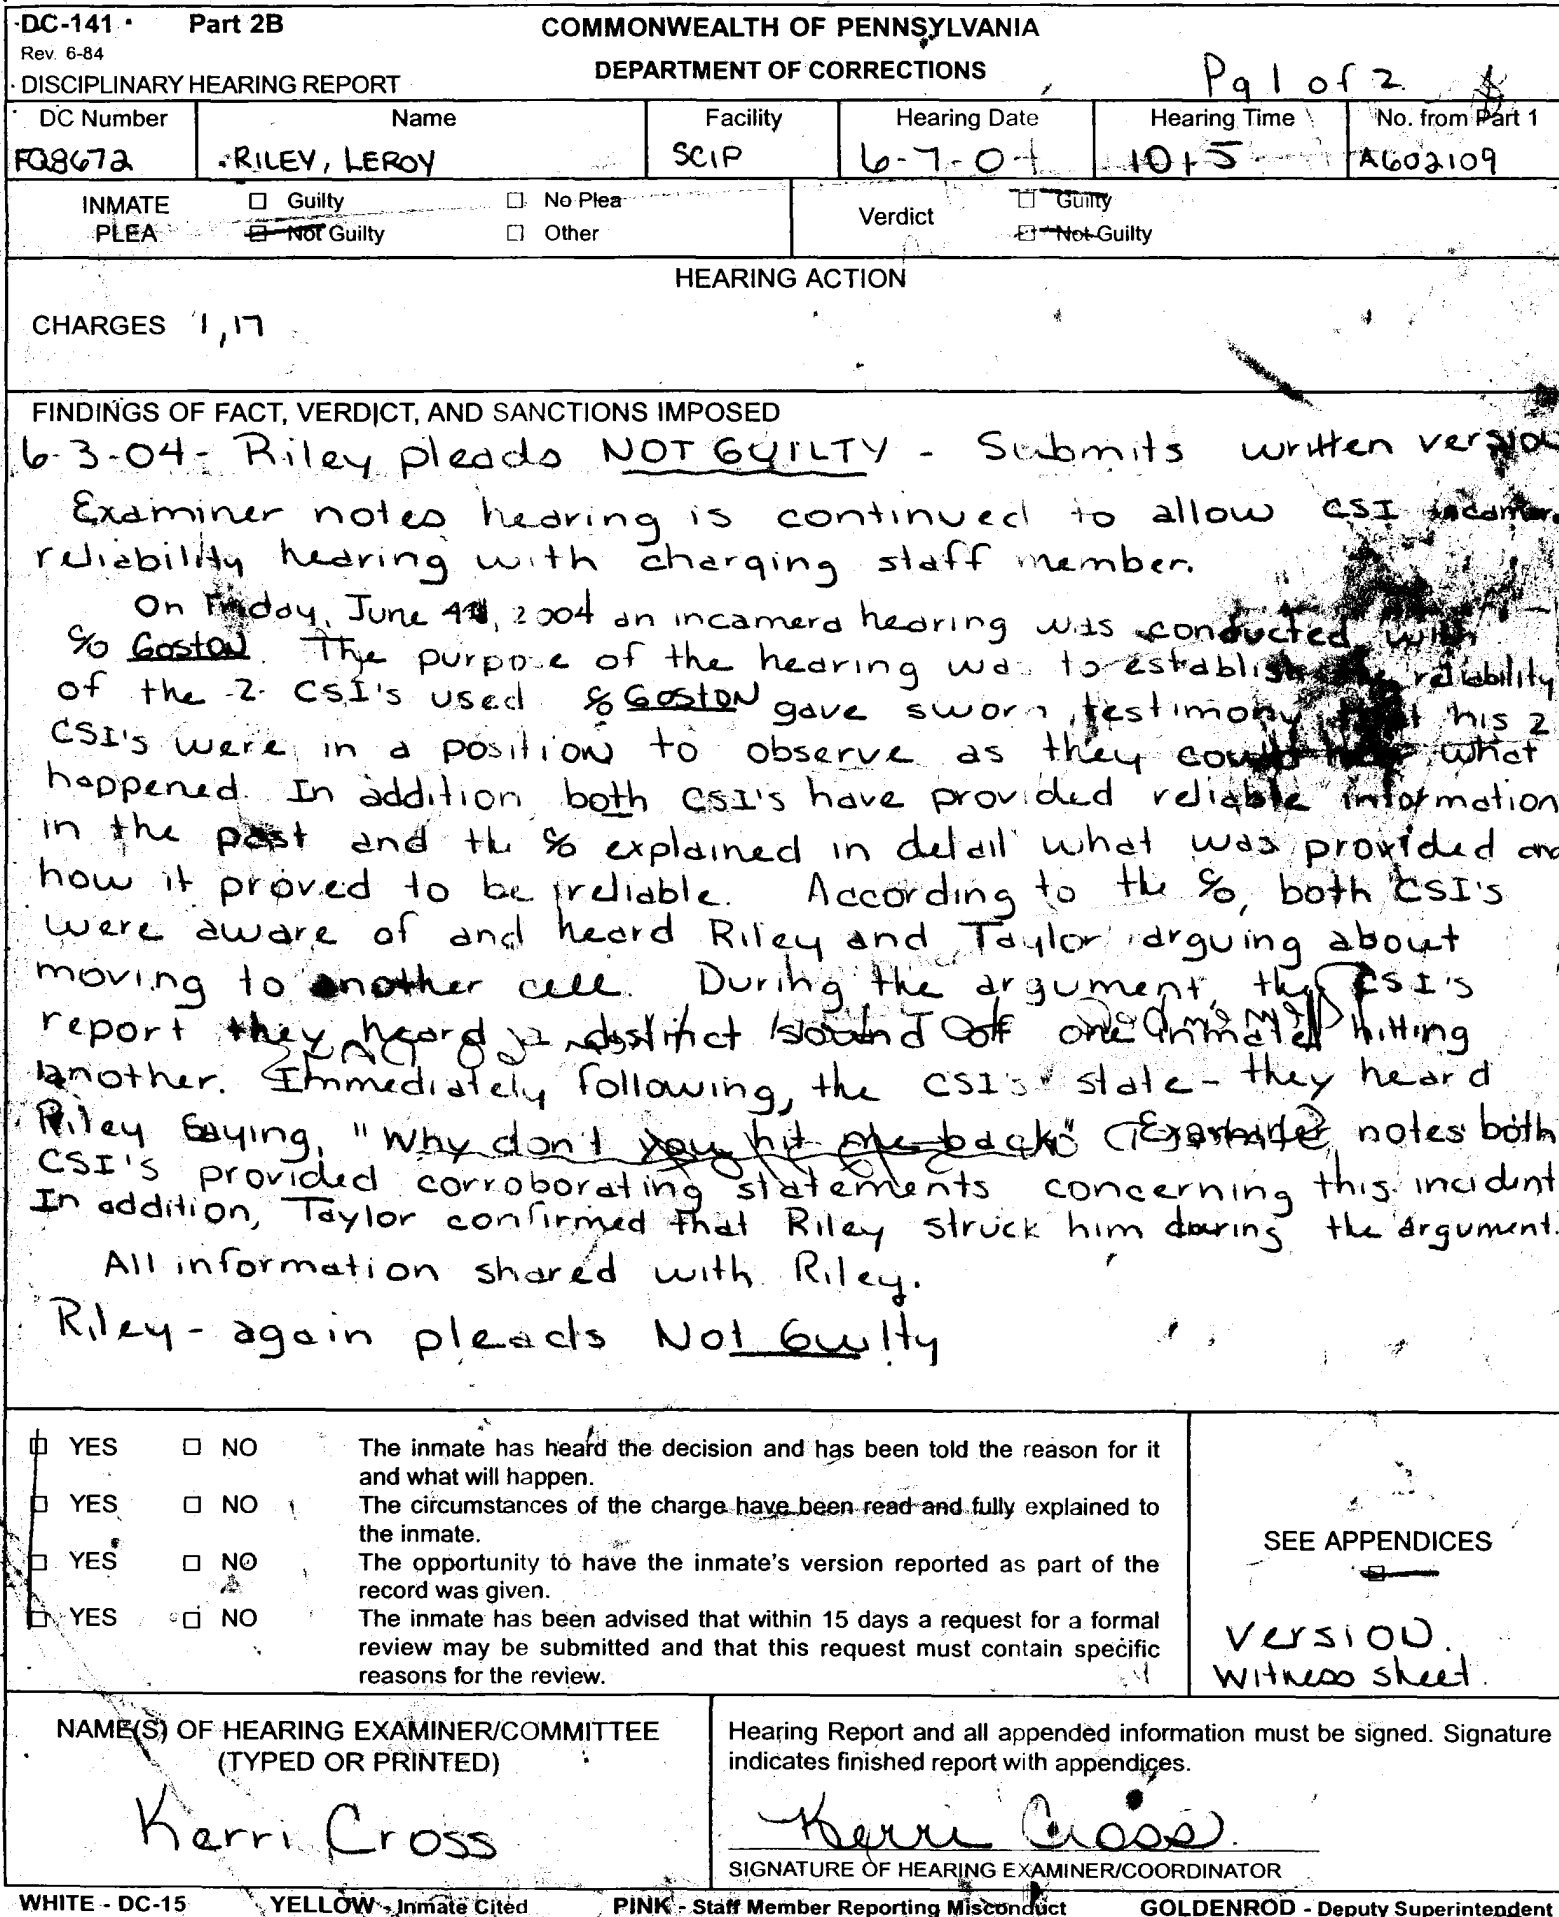 DC-141 Part 2B COMMONWEALTH OF PENNSYLVANIA
Rev. 6-84
DISCIPLINARY HEARING REPORT DEPARTMENT OF CORRECTIONS Pg 1 of 2
DC Number Name Facility Hearing Date Hearing Time No. from Part 1
FQ8672 RILEY, LEROY SCIP 6-7-04 1015 A602109
INMATE PLEA ☐ Guilty ☐ No Plea Verdict ☐ Guilty
Not Guilty ☐ Other Not Guilty
HEARING ACTION
CHARGES 1, 17
FINDINGS OF FACT, VERDICT, AND SANCTIONS IMPOSED
6-3-04 - Riley pleads NOT GUILTY - Submits written version
Examiner notes hearing is continued to allow CSI incamera
reliability hearing with charging staff member.
On Friday, June 4th, 2004 an incamera hearing was conducted with
C/O Goston. The purpose of the hearing was to establish the reliability
of the 2 CSI's used C/O Goston gave sworn testimony that his 2
CSI's were in a position to observe as they could hear what
happened. In addition both CSI's have provided reliable information
in the past and the C/O explained in detail what was provided and
how it proved to be reliable. According to the C/O, both CSI's
were aware of and heard Riley and Taylor arguing about
moving to another cell. During the argument, the CSI's
report they heard a distinct sound of one inmate hitting
another. Immediately following, the CSI's state - they heard
Riley saying, "Why don't you hit me back" Examiner notes both
CSI's provided corroborating statements concerning this incident
In addition, Taylor confirmed that Riley struck him during the argument.
All information shared with Riley.
Riley - again pleads Not Guilty
☐ YES ☐ NO The inmate has heard the decision and has been told the reason for it
and what will happen.
☐ YES ☐ NO The circumstances of the charge have been read and fully explained to
the inmate.
☐ YES ☐ NO The opportunity to have the inmate's version reported as part of the
record was given.
☐ YES ☐ NO The inmate has been advised that within 15 days a request for a formal
review may be submitted and that this request must contain specific
reasons for the review.
SEE APPENDICES
Version.
Witness sheet.
NAME(S) OF HEARING EXAMINER/COMMITTEE
(TYPED OR PRINTED)
Kerri Cross
Hearing Report and all appended information must be signed. Signature
indicates finished report with appendices.
Kerri Cross
SIGNATURE OF HEARING EXAMINER/COORDINATOR
WHITE - DC-15 YELLOW - Inmate Cited PINK - Staff Member Reporting Misconduct GOLDENROD - Deputy Superintendent